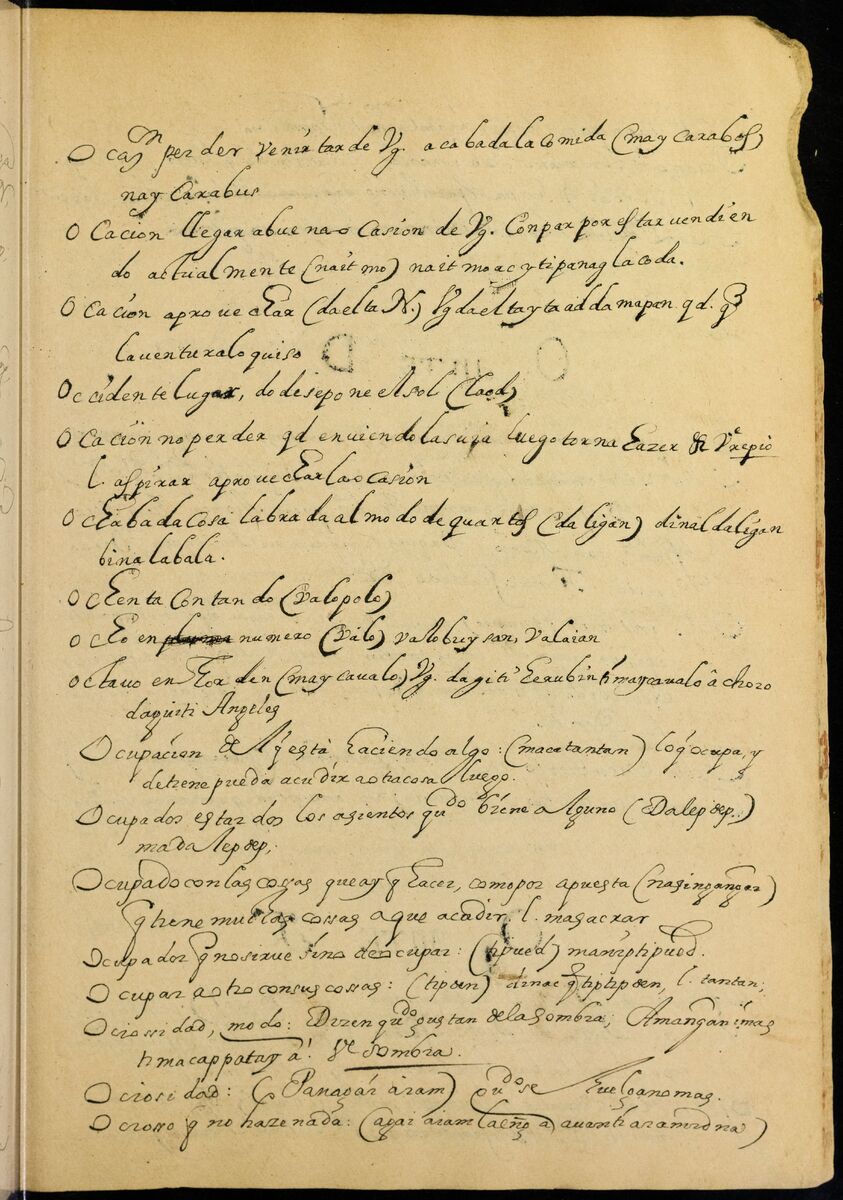 Ocaçn perder venir tarde Vg. acabada la comida (may carabos)
nay carabus
Ocacion llegar abuena ocasion de Vg. Conpar por estar vendien
do actualmente (naitmo) naitmo acy tipanaglacoda.
Ocacion aprovechar (daelta N.) Vg daelta yta adda mapan qd. q
la ventura lo quiso
Occidente lugar, do de se pone el sol (laod)
Ocacion no perder qd enviendo la suia luego torna hazer
l. aspirar aprovechar la ocasion
Ochabada cosa labrada al modo de quartos (daligan) dinaldaligan
binalabala.
Ochenta contando (valopolo)
Ocho en numero (valo) valobuysan, valaian
Octavo en Hорden (maycavalo) Vg. dagiti Cherubin ti maycavalo â choro
dagiti Angeles
Ocupacion de Alg está haciendo algo: (macatantan) lo q ocupa, y
detiene pueda acudir a otra cosa luego.
Ocupados estar dos los asientos qudo biene Alguno (Dalepdep.)
madalepdep,
Ocupado con las cossas que ay q hacer, como por apuesta (nasingangar)
q tiene muchas cossas a que acudir, l. magacrar
Ocupador q no sirve sino de ocupar: (tipued) maniptipued.
Ocupar a otro con sus cossas: (tipden) dinac q tiptipden, l. tantan;
Ociossidad, modo: Dizen qudo gustan de la sombra; Amangan imas
ti macappatay a! Ve sombra.
Ociosidad: (Panagáriaram) qudo se huelgan o mas.
Ociosso q no haze nada: (agariaram